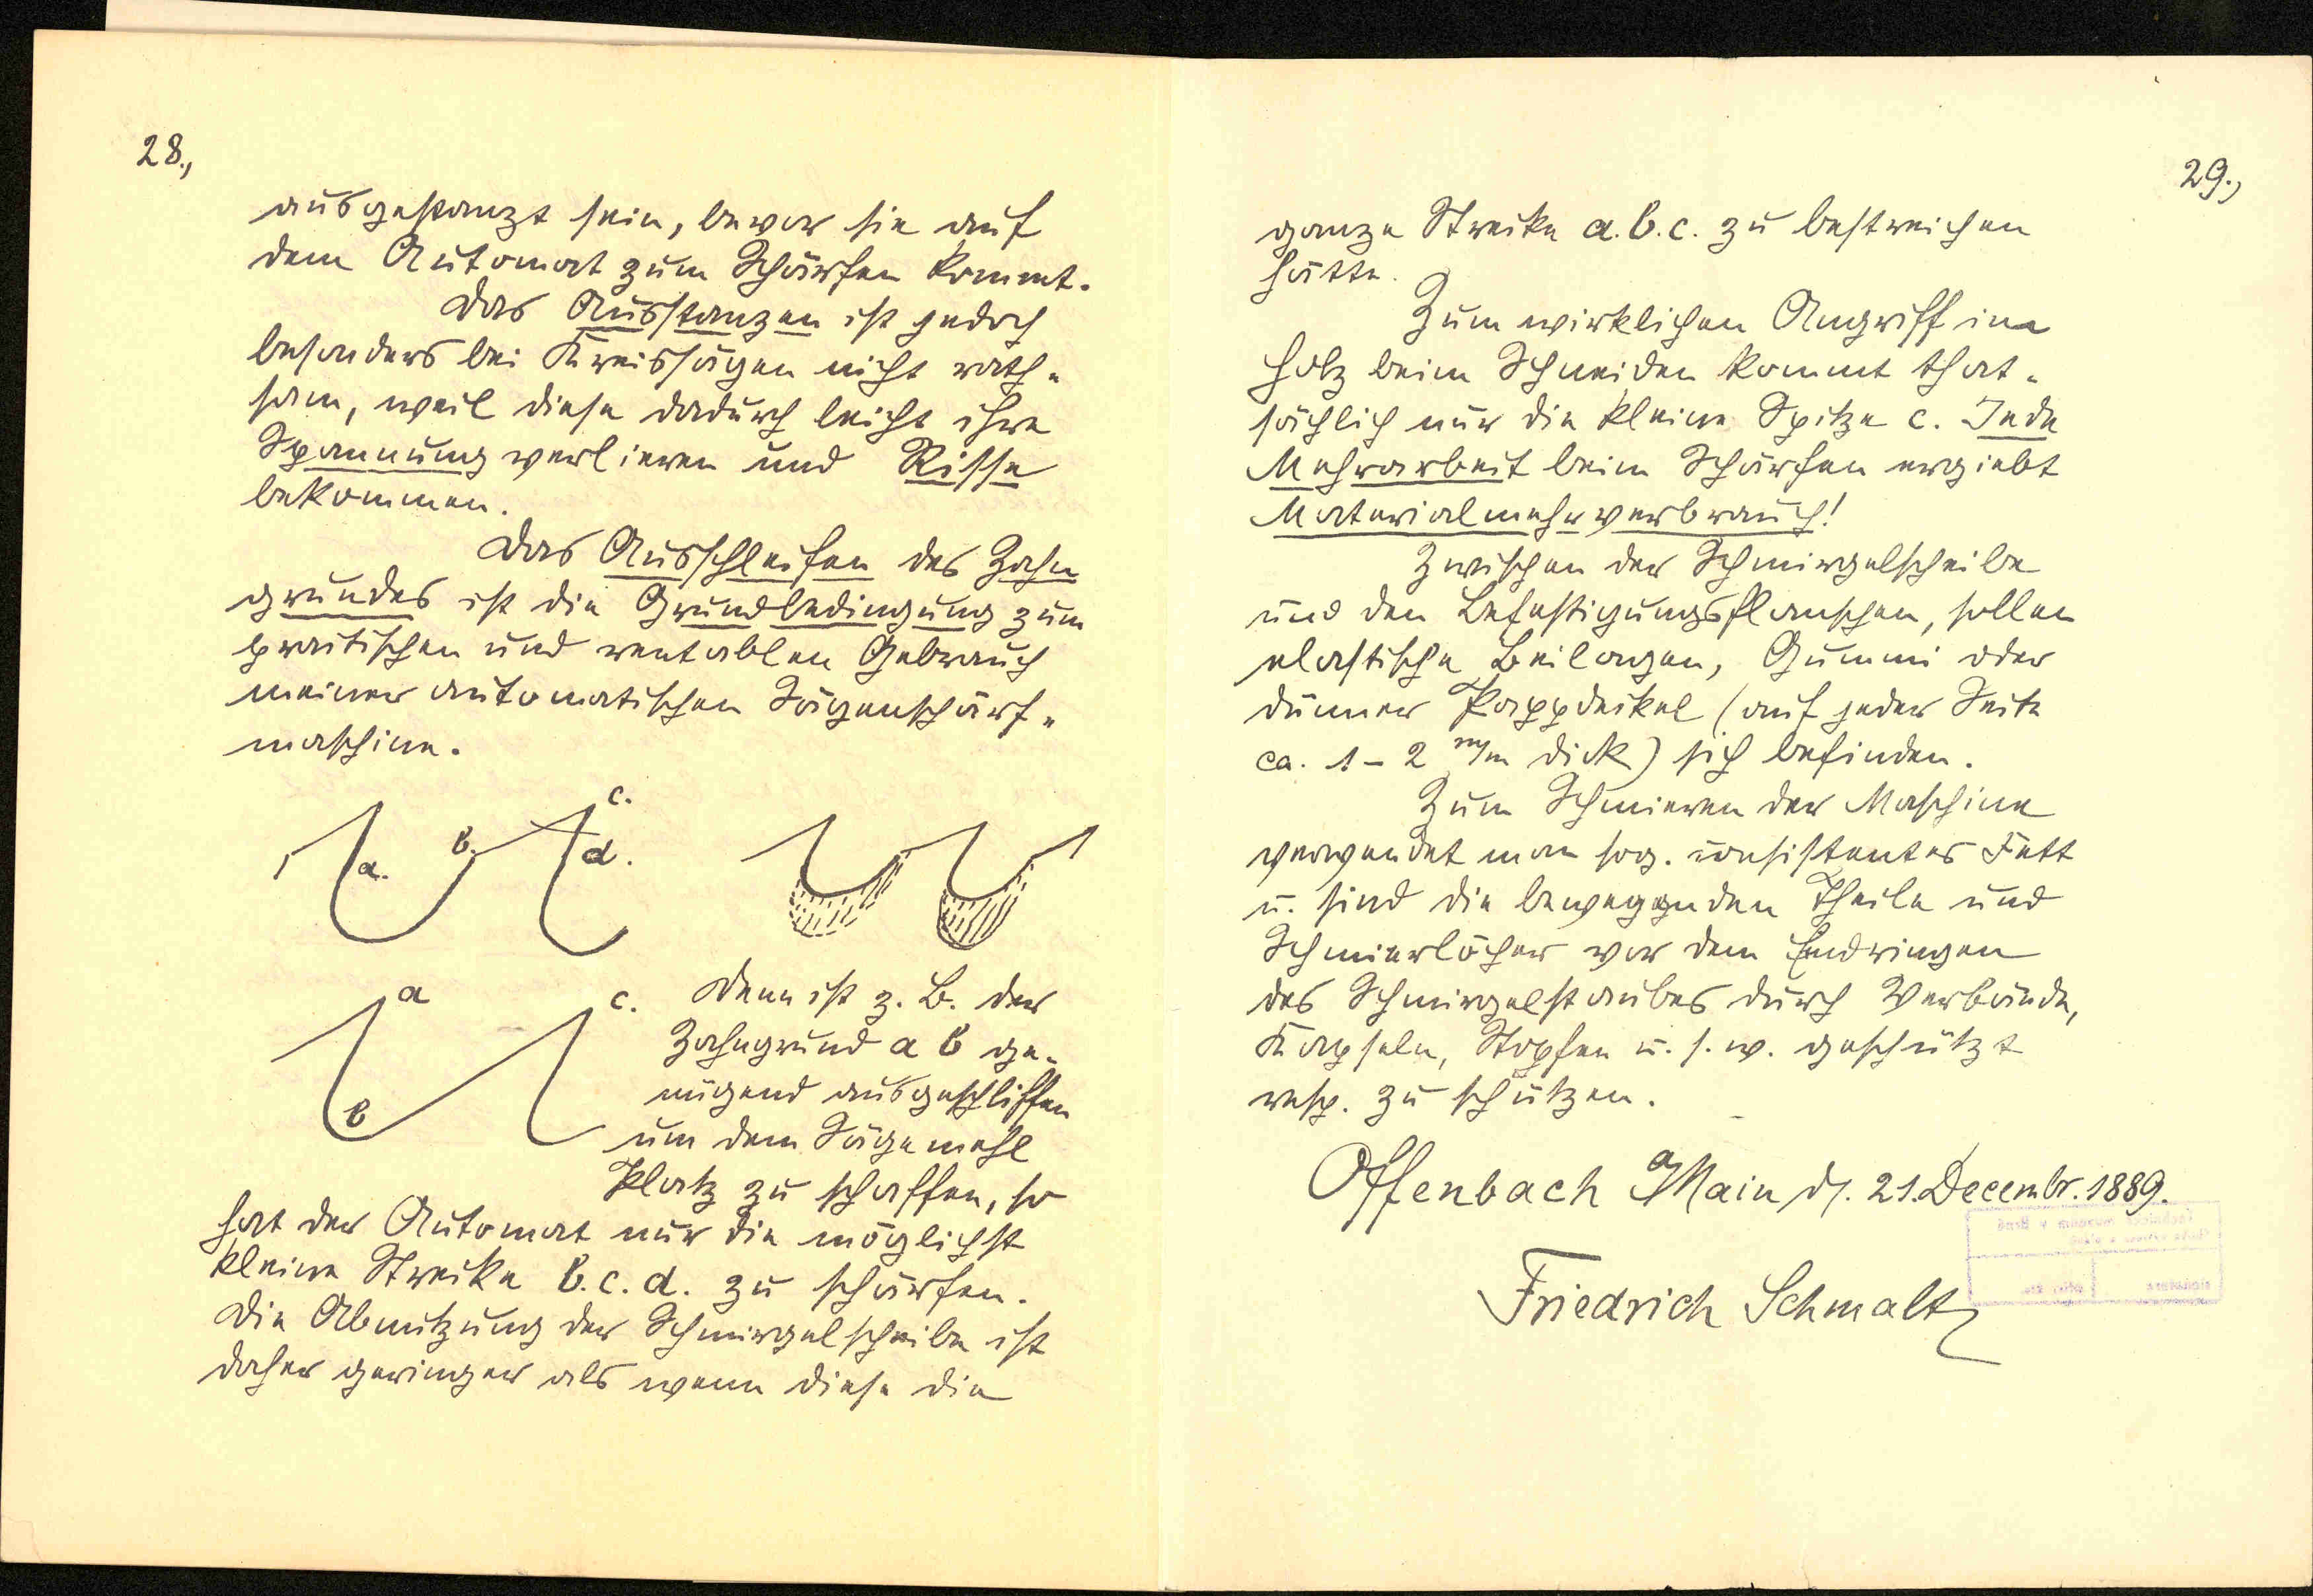 28.,
ausgestanzt sein, bevor sie auf
dem Automat zum Schärfen kommt.
Das Ausstanzen ist jedoch
besonders bei Kreissägen nicht rath-
sam, weil diese dadurch leicht ihre
Spannung verlieren und Risse
bekommen.
Das Ausschleifen des Zahn
grundes ist die Grundbedingung zum
practischen und rentablen Gebrauch
meiner automatischen Sägenschärf-
maschine.
c.
a.
b.
d.
a
c.
b
Denn ist z. B. der
Zahngrund a b ge-
nügend ausgeschliffen
um dem Sägemehl
Platz zu schaffen, so
hat der Automat nur die möglichst
kleine Strecke b. c. d. zu schärfen.
Die Abnutzung der Schmirgelscheibe ist
daher geringer als wenn diese die
29.,
ganze Strecke a. b. c. zu bestreichen
hätte.
Zum wirklichen Angriff im
Holz beim Schneiden kommt that-
sächlich nur die kleine Spitze c. Jede
Mehrarbeit beim Schärfen ergiebt
Materialmehrverbrauch!
Zwischen der Schmirgelscheibe
und den Befestigungsflanschen, sollen
elastische Beilagen, Gummi oder
dünner Pappdeckel (auf jeder Seite
ca. 1 - 2 m/m dick) sich befinden.
Zum Schmieren der Maschine
verwendet man sog. consistentes Fett
u. sind die bewegenden Theile und
Schmierlöcher vor dem Eindringen
des Schmirgelstaubes durch Verbände,
Kapseln, Stopfen u. s. w. geschützt
resp. zu schützen.
Offenbach a Main d. 21. Decembr. 1889.
Friedrich Schmaltz